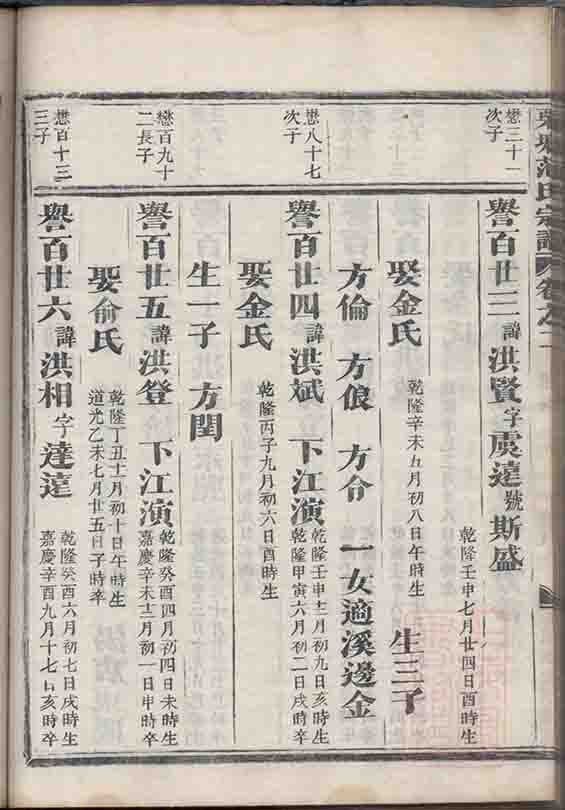 范氏宗譜 卷之二
懋三十一
次子
譽百廿三 諱洪賢字虞遠號斯盛
乾隆壬申七月廿四日酉時生
娶金氏
乾隆辛未五月初八日午時生
生三子
方倫 方俍 方令 一女適溪邊金
懋八十七
次子
譽百廿四 諱洪斌 下江演
乾隆壬申十二月初九日亥時生
乾隆甲寅六月初二日戌時卒
娶金氏
乾隆丙子九月初六日酉時生
生一子 方閏
懋百九十
二長子
譽百廿五 諱洪登 下江演
乾隆癸酉四月初四日未時生
嘉慶辛未十二月初一日申時卒
娶俞氏
乾隆丁丑十一月初十日午時生
道光乙未七月廿五日子時卒
懋百十三
三子
譽百廿六 諱洪相字達遠
乾隆癸酉六月初七日戌時生
嘉慶辛酉九月十七日亥時卒